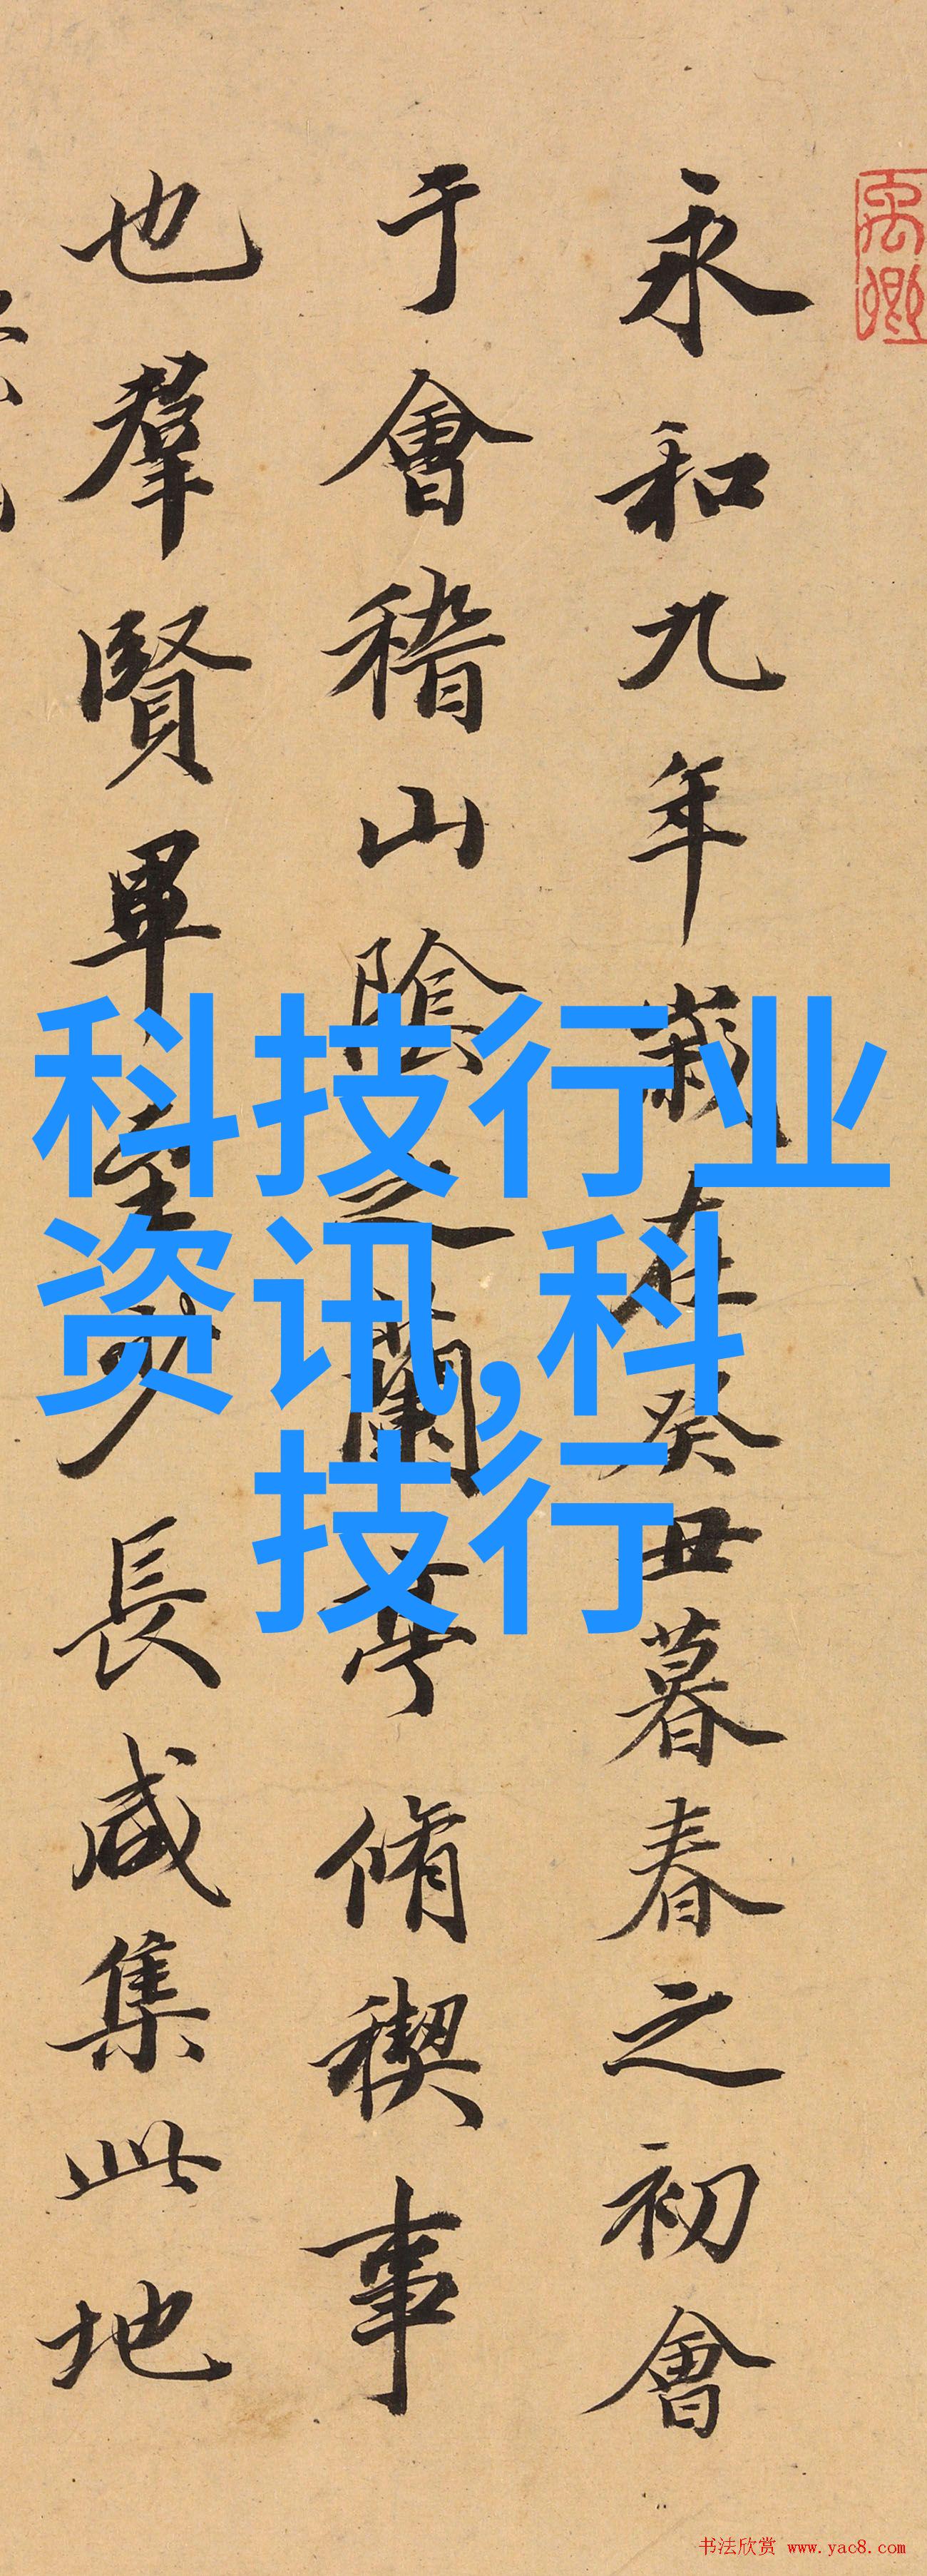 永和九年歲在癸丑暮春之初會
于會稽山陰之蘭亭脩稧事
也羣賢畢至少長咸集此地
禹卿
科技行业
资讯,科
技行
书法欣赏 www.yac8.com